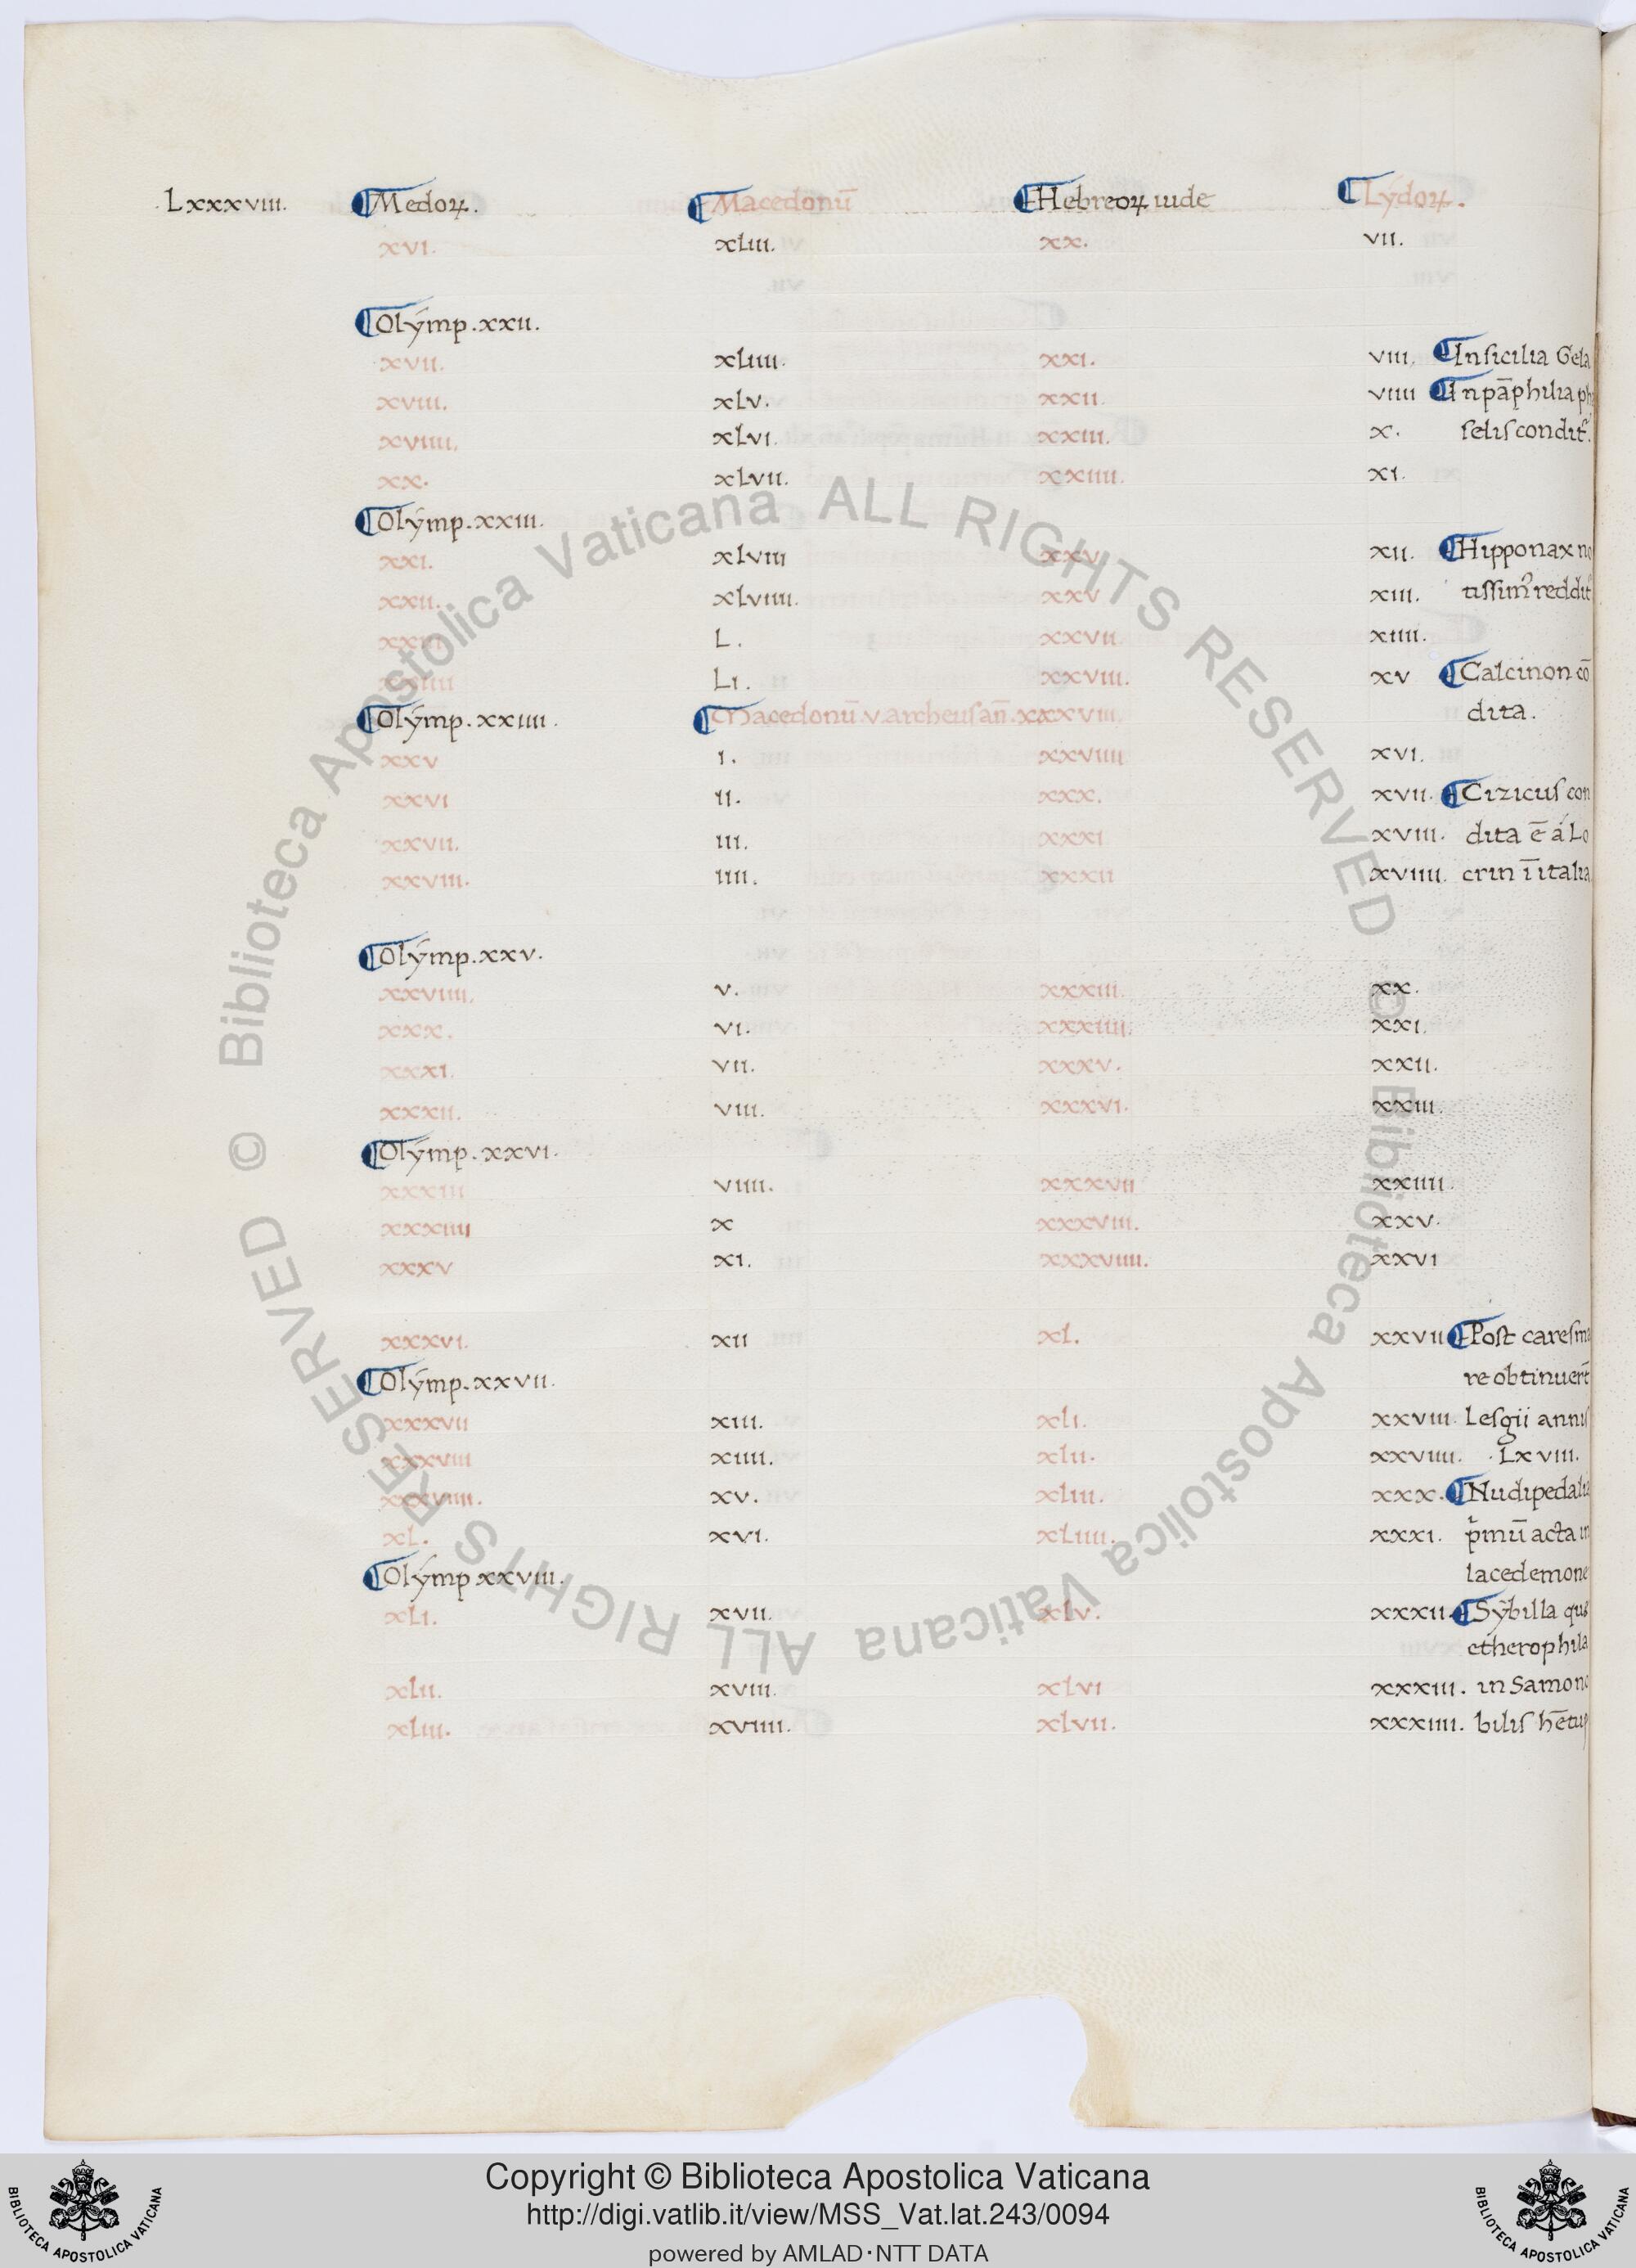 Lxxxviii. Medoꝝ. Macedonū Hebreoꝝ iude Lydoꝝ.
xvi. xliii. xx. vii.
Olymp. xxii.
xvii. xliiii. xxi. viii. In sicilia Gela
xviii. xlv. xxii. viiii In pāphilia ph
xviiii. xlvi. xxiii. x. selis condit᷑.
xx. xlvii. xxiiii. xi.
Olymp. xxiii.
xxi. xlviii xxv xii. Hipponax no
xxii. xlviiii. xxv xiii. tissim᷒ reddit᷑
xxiii L. xxvii. xiiii.
xxiiii Li. xxviii. xv Calcinon cō
Olymp. xxiiii. Macedonū. v. archeus añ. xxxviii. dita.
xxv i. xxviiii xvi.
xxvi ii. xxx. xvii. Cizicus con
xxvii. iii. xxxi xviii. dita ē á Lo
xxviii. iiii. xxxii xviiii. crin ī italia
Olymp. xxv.
xxviiii. v. xxxiii. xx.
xxx. vi. xxxiiii. xxi.
xxxi. vii. xxxv. xxii.
xxxii. viii. xxxvi. xxiii.
Olymp. xxvi.
xxxiii viiii. xxxvii xxiiii.
xxxiiii x xxxviii. xxv.
xxxv xi. xxxviiii. xxvi
xxxvi. xii xl. xxvii Post cares ma
Olymp. xxvii. re obtinuer̄t
xxxvii xiii. xli. xxviii. Lesgii annis
xxxviii xiiii. xlii. xxviiii. Lxviii.
xxxviiii. xv. xliii. xxx. Nudipedalia
xl. xvi. xliiii. xxxi. pͥmū acta in
Olymp xxviii. lacedemone
xli. xvii. xlv. xxxii. Sybilla que
et herophila
xlii. xviii. xlvi xxxiii. in Samo no
xliii. xviiii. xlvii. xxxiiii. bilis hētur
© Biblioteca Apostolica Vaticana ALL RIGHTS RESERVED © Biblioteca Apostolica Vaticana ALL RIGHTS RESERVED
Copyright © Biblioteca Apostolica Vaticana
http://digi.vatlib.it/view/MSS_Vat.lat.243/0094
powered by AMLAD·NTT DATA
BIBLIOTECA APOSTOLICA VATICANA
BIBLIOTECA APOSTOLICA VATICANA